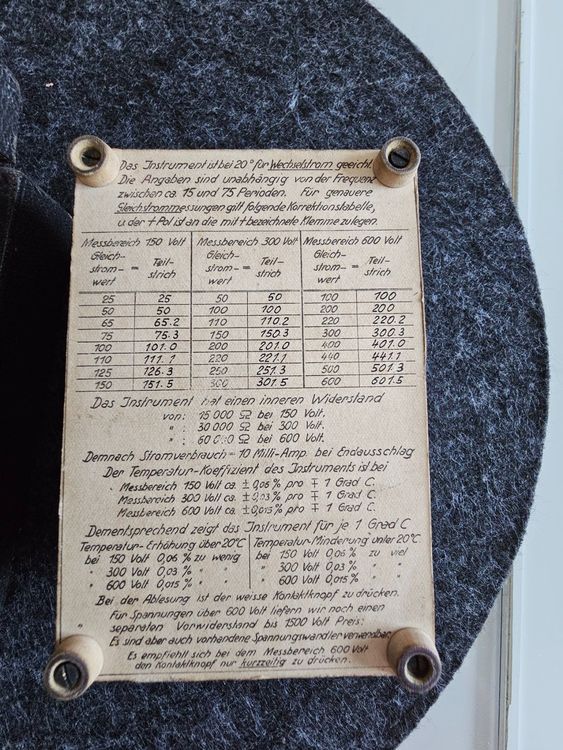 Das Instrument ist bei 20° für Wechselstrom geeicht.
Die Angaben sind unabhängig von der Frequenz
zwischen ca. 15 und 75 Perioden. Für genauere
Gleichstrommessungen gilt folgende Korrektionstabelle,
u. der + Pol ist an die mit + bezeichnete Klemme zu legen.
Messbereich 150 Volt Messbereich 300 Volt Messbereich 600 Volt
Gleich- Teil- Gleich- Teil- Gleich- Teil-
strom- = strich strom- = strich strom- = strich
wert wert wert
25 25 50 50 100 100
50 50 100 100 200 200
65 65.2 110 110.2 220 220.2
75 75.3 150 150.3 300 300.3
100 101.0 200 201.0 400 401.0
110 111.1 220 221.1 440 441.1
125 126.3 250 251.3 500 501.3
150 151.5 300 301.5 600 601.5
Das Instrument hat einen inneren Widerstand
von: 15 000 Ω bei 150 Volt.
" : 30 000 Ω bei 300 Volt.
" : 60 000 Ω bei 600 Volt.
Demnach Stromverbrauch = 10 Milli-Amp. bei Endausschlag
Der Temperatur-Koeffizient des Instruments ist bei
Messbereich 150 Volt ca. ± 0,06 % pro ∓ 1 Grad C.
Messbereich 300 Volt ca. ± 0,03 % pro ∓ 1 Grad C.
Messbereich 600 Volt ca. ± 0,015 % pro ∓ 1 Grad C.
Dementsprechend zeigt das Instrument für je 1 Grad C
Temperatur-Erhöhung über 20°C Temperatur-Minderung unter 20°C
bei 150 Volt 0,06 % zu wenig bei 150 Volt 0,06 % zu viel
" 300 Volt 0,03 % " " " 300 Volt 0,03 % " "
" 600 Volt 0,015 % " " " 600 Volt 0,015 % " "
Bei der Ablesung ist der weisse Kontaktknopf zu drücken.
Für Spannungen über 600 Volt liefern wir noch einen
separaten Vorwiderstand bis 1500 Volt Preis:
Es sind aber auch vorhandene Spannungswandler verwendbar.
Es empfiehlt sich bei dem Messbereich 600 Volt
den Kontaktknopf nur kurzzeitig zu drücken.